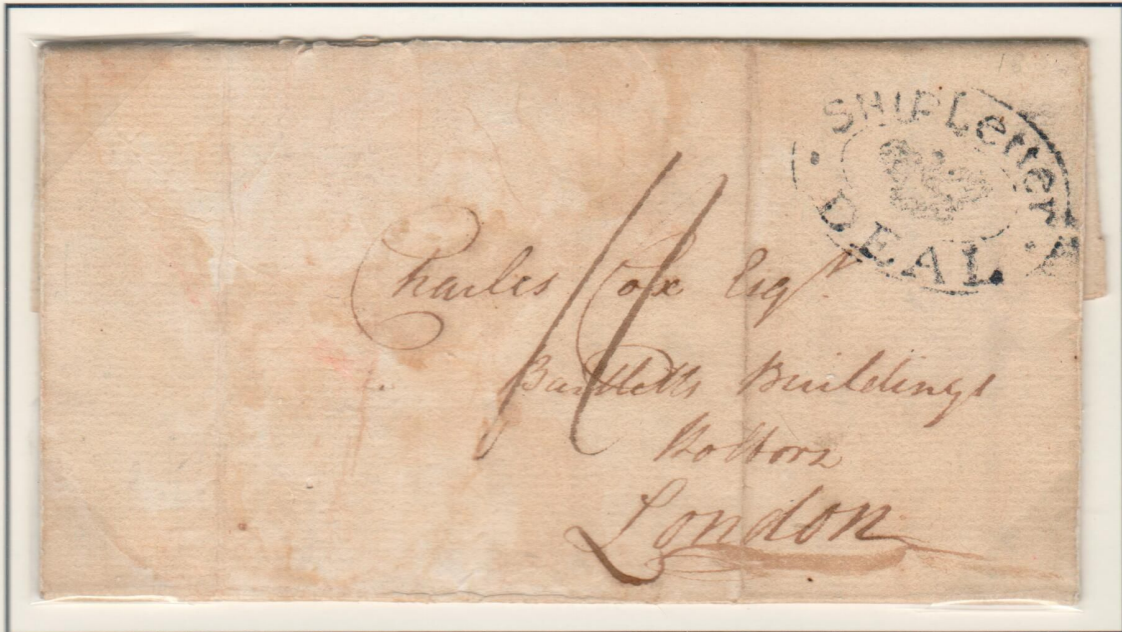 SHIP Letter
DEAL
Charles Cox Esqr.
Bartletts Buildings
Holborn
London